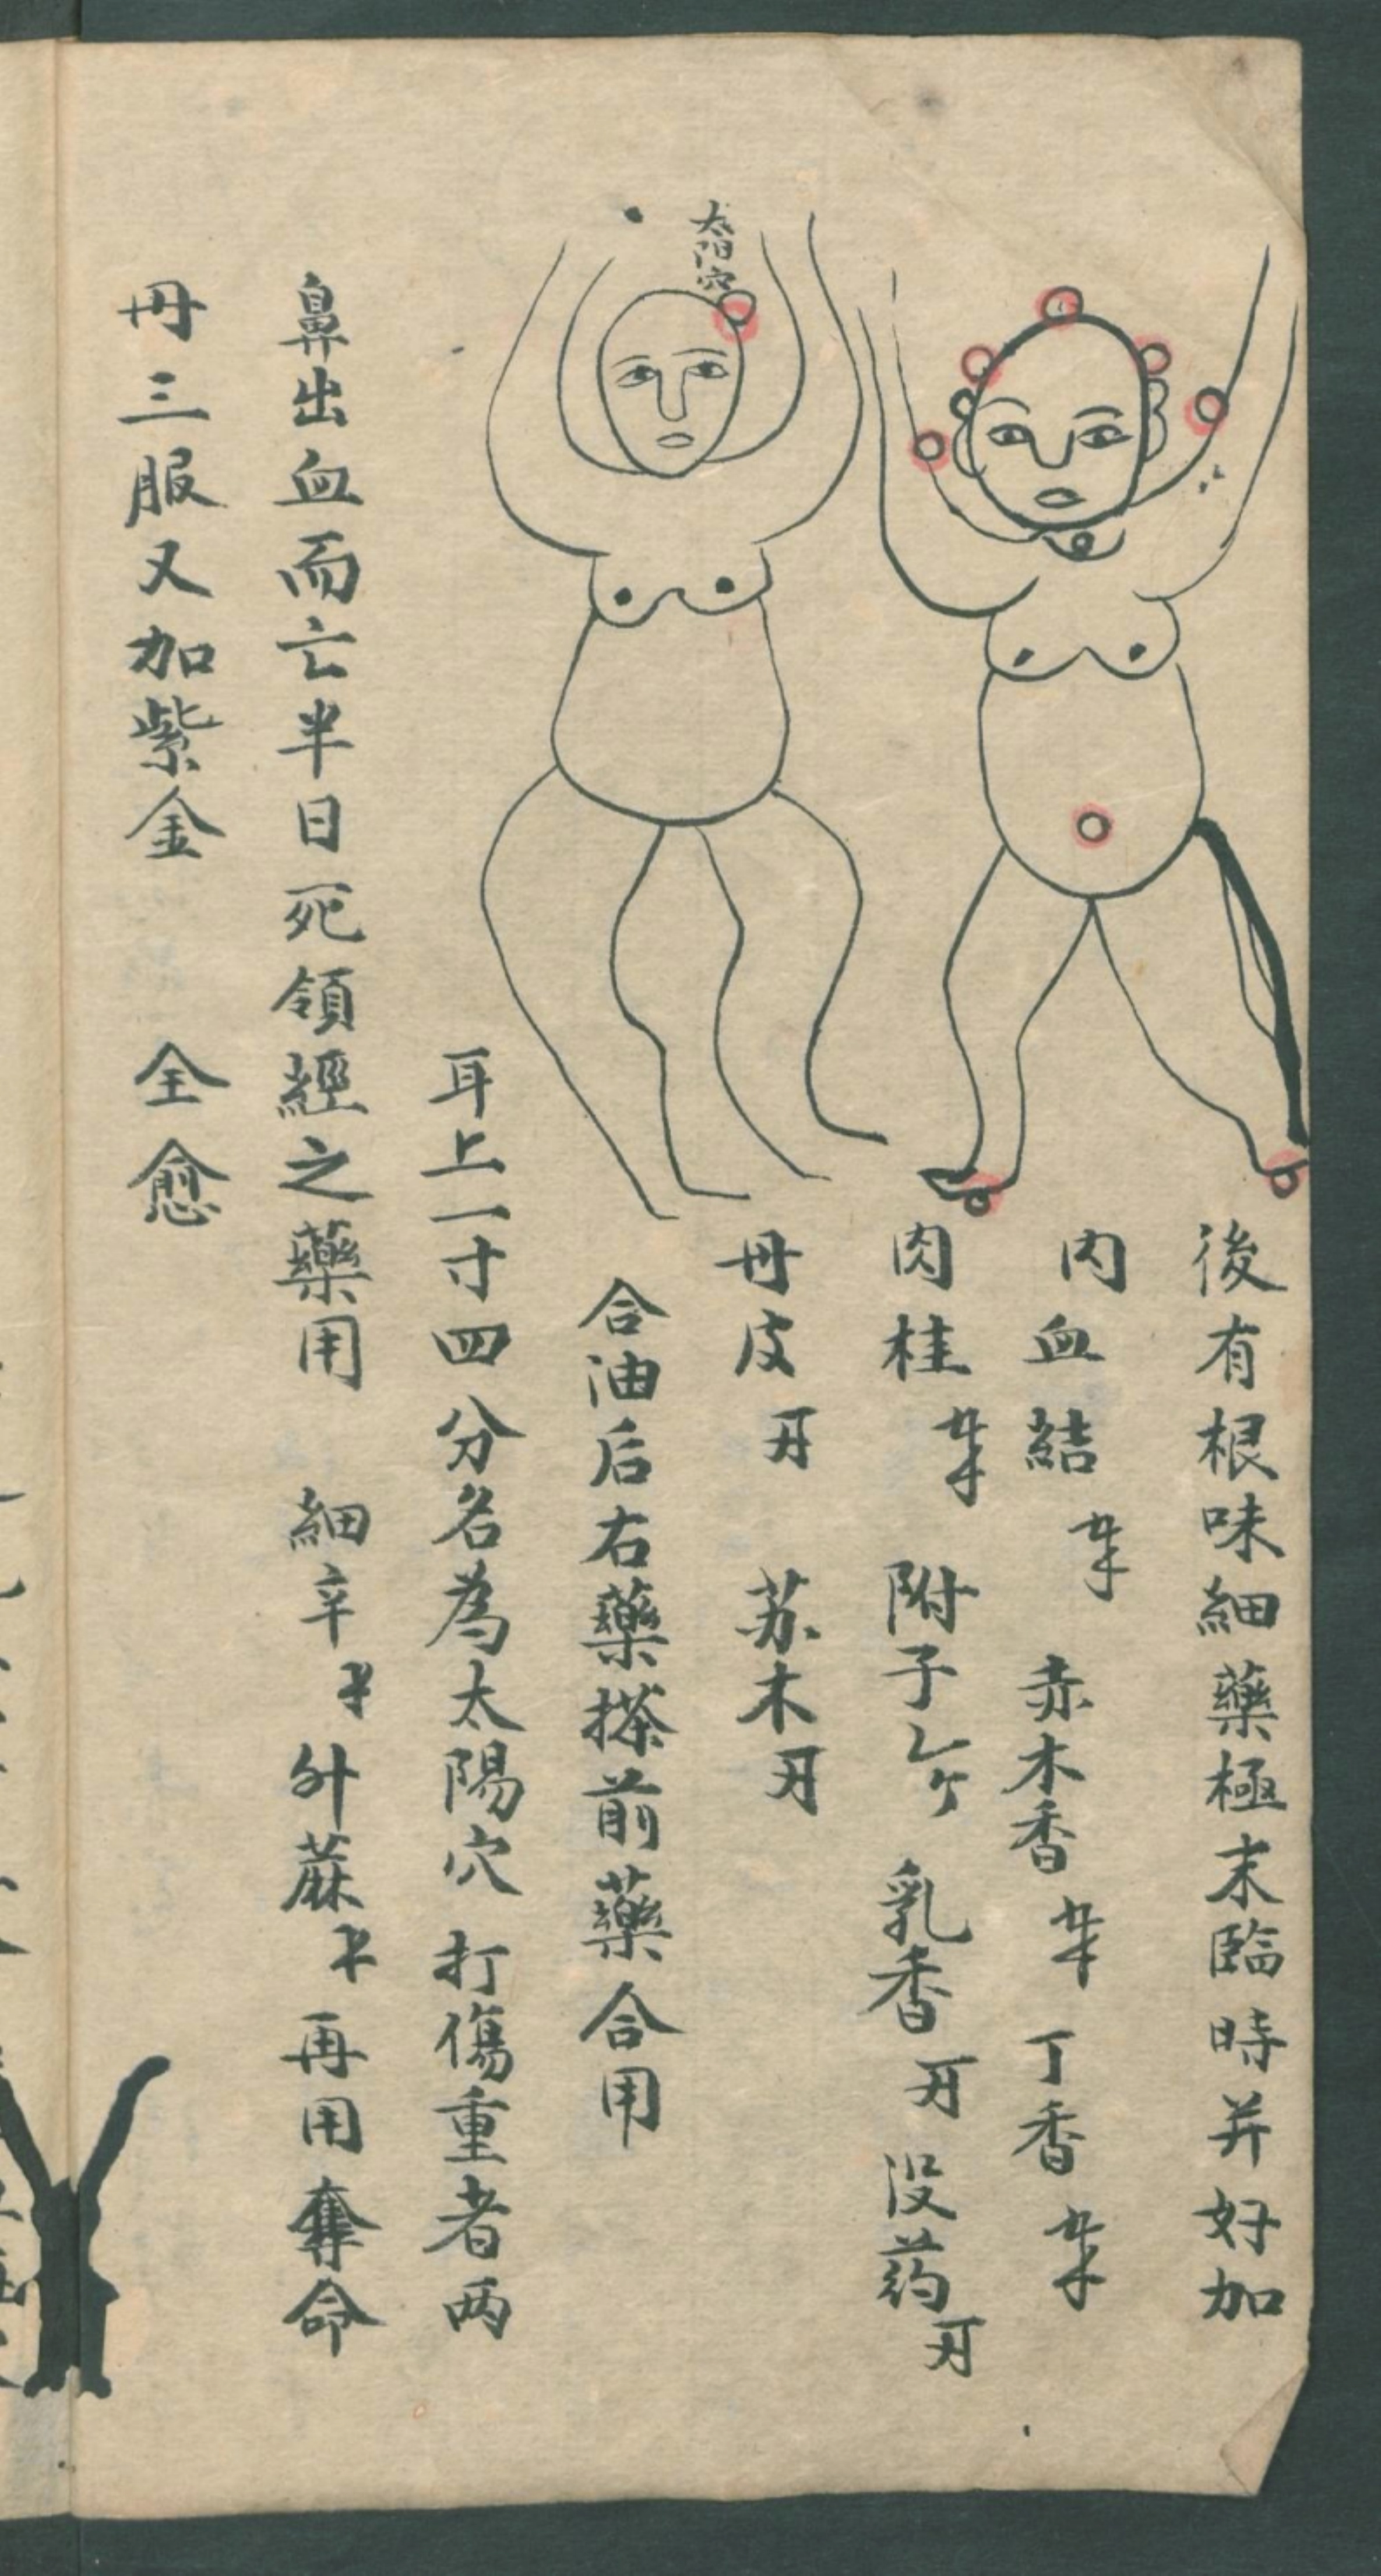 後有根味細藥極末臨時并好加
内血結 赤木香 丁香
肉桂 附子 乳香 没药
丹皮 苏木
合油后右藥搽前藥合用
太阳穴
耳上一寸四分名為太陽穴打傷重者两
鼻出血而亡半日死領經之藥用 細辛 升蔴 再用奪命
丹三服又加紫金 全愈